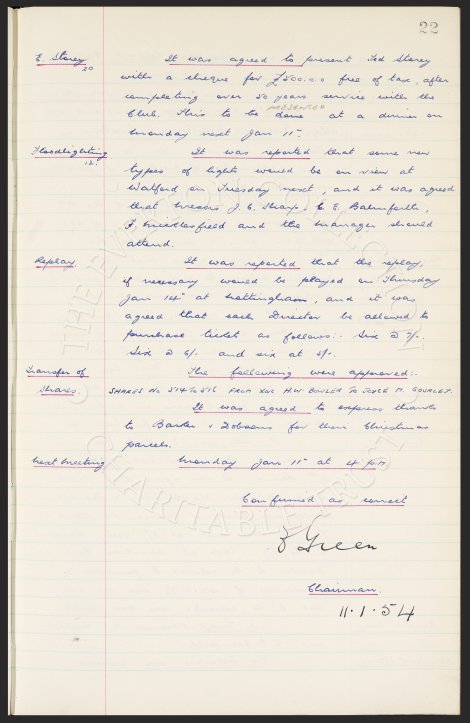 22
E. Storey
20
It was agreed to present Ted Storey
with a cheque for £500.0.0 free of tax, after
completing over 20 years service with the
Club. This to be done at a dinner on
PRESENTED
Monday next Jan 11th.
Floodlighting
12.
It was reported that some new
types of lights would be on view at
Watford on Tuesday next, and it was agreed
that Messrs J. E. Sharp, C. E. Balmforth,
F. Micklesfield and the Manager should
attend.
Replay.
It was reported that the replay,
if necessary would be played on Thursday
Jan 14th at Nottingham, and it was
agreed that each Director be allowed to
purchase ticket as follows:- Six @ 7/-.
Six @ 6/- and six at 5/-.
Transfer of
Shares.
The following were approved:-
SHARES No 514 TO 516 FROM H.W. BOWLER TO JOYCE M. GOURLEY.
It was agreed to express thanks
to Barker & Dobsons for their Christmas
parcels.
Next Meeting
Monday Jan 11th at 4 p.m
Confirmed as correct
Green
Chairman.
11.1.54
THE EVERTON COLLECTION
CHARITABLE TRUST